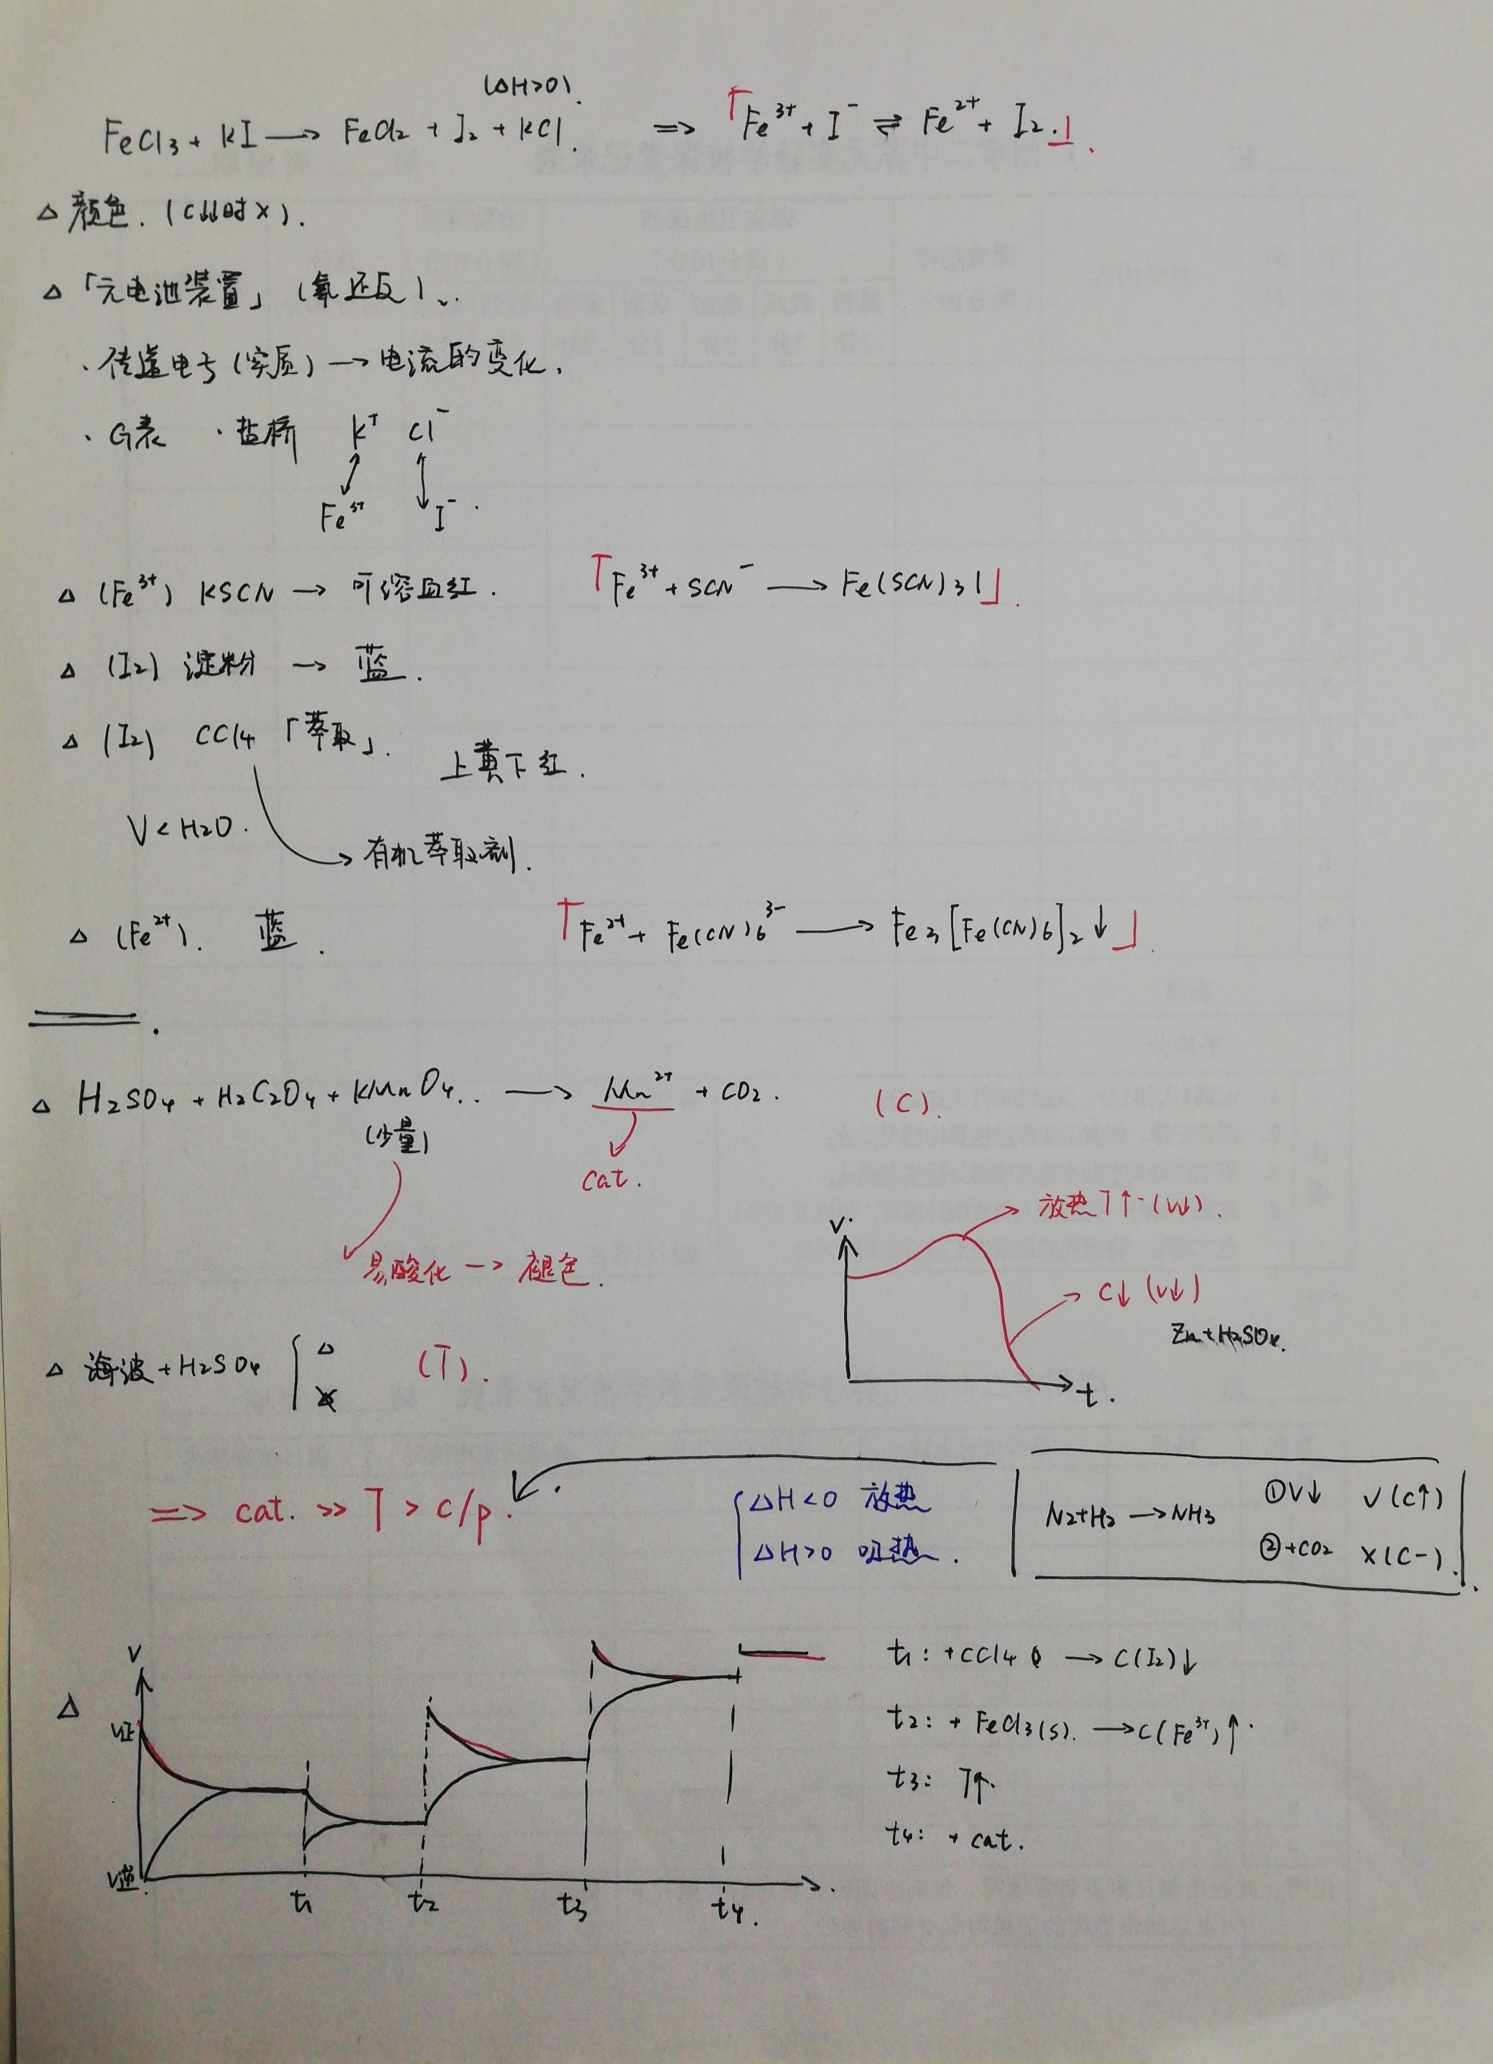 (△H>0).
FeCl3 + KI → FeCl2 + I2 + KCl. => 「Fe³⁺ + I⁻ ⇌ Fe²⁺ + I2.」.
△ 颜色. (C↓↓时 ×).
△ 「元电池装置」 (氧还反)、.
· 传递电子 (实质) → 电流的变化.
· G表 · 盐桥 K⁺ Cl⁻
Fe³⁺ I⁻ .
△ (Fe³⁺) KSCN → 可溶血红. 「Fe³⁺ + SCN⁻ → Fe(SCN)3」.
△ (I2) 淀粉 → 蓝.
△ (I2) CCl4 「萃取」. 上黄下红.
V < H2O. → 有机萃取剂.
△ (Fe²⁺). 蓝. 「Fe²⁺ + Fe(CN)6³⁻ → Fe3[Fe(CN)6]2↓」.
△ H2SO4 + H2C2O4 + KMnO4.. → Mn²⁺ + CO2. (C).
(少量) cat.
易酸化 → 褪色.
V. 放热 T↑·(V↓).
C↓ (V↓)
Zn + H2SO4.
t.
△ 海波 + H2SO4 { △ (T).
=> cat. >> T > c/p.
△H<0 放热
△H>0 吸热.
N2+H2 → NH3 ①V↓ V(C↑)
②+CO2 ×(C-).
△ V V正 V逆. t1 t2 t3 t4.
t1: +CCl4 → C(I2)↓
t2: + FeCl3(s). → C(Fe³⁺)↑.
t3: T↑.
t4: + cat.